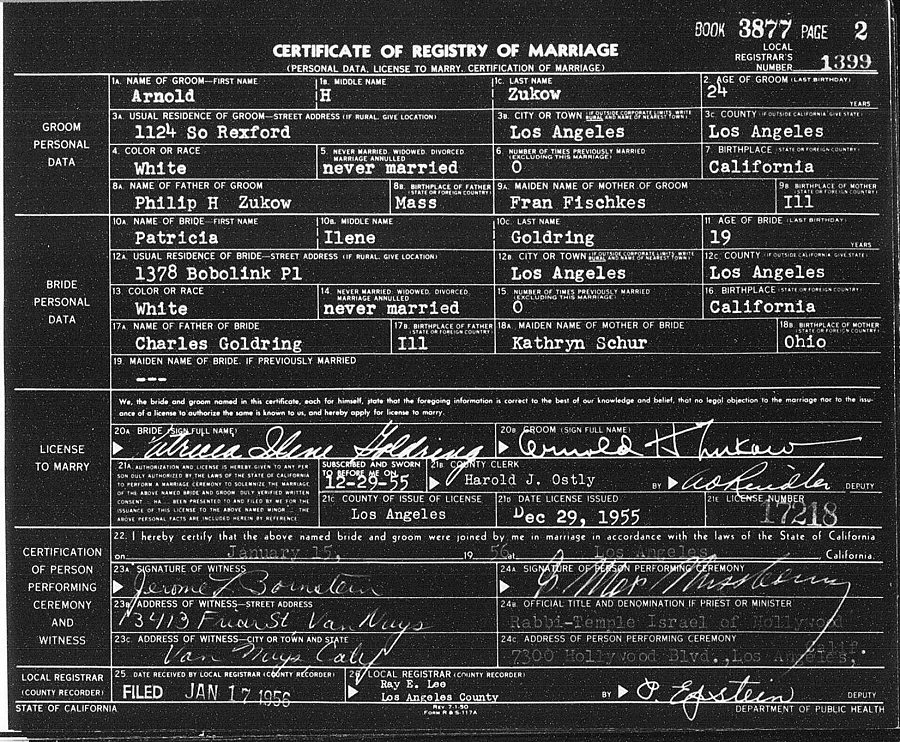 BOOK 3877 PAGE 2
CERTIFICATE OF REGISTRY OF MARRIAGE
(PERSONAL DATA, LICENSE TO MARRY, CERTIFICATION OF MARRIAGE)
LOCAL REGISTRAR'S NUMBER 1399
GROOM PERSONAL DATA
1A. NAME OF GROOM—FIRST NAME 1B. MIDDLE NAME 1C. LAST NAME 2. AGE OF GROOM (LAST BIRTHDAY)
Arnold H Zukow 24 YEARS
3A. USUAL RESIDENCE OF GROOM—STREET ADDRESS (IF RURAL, GIVE LOCATION) 3B. CITY OR TOWN (IF OUTSIDE CORPORATE LIMITS, WRITE RURAL AND NAME OF NEAREST TOWN) 3C. COUNTY (IF OUTSIDE CALIFORNIA, GIVE STATE)
1124 So Rexford Los Angeles Los Angeles
4. COLOR OR RACE 5. NEVER MARRIED, WIDOWED, DIVORCED, MARRIAGE ANNULLED 6. NUMBER OF TIMES PREVIOUSLY MARRIED (EXCLUDING THIS MARRIAGE) 7. BIRTHPLACE (STATE OR FOREIGN COUNTRY)
White never married 0 California
8A. NAME OF FATHER OF GROOM 8B. BIRTHPLACE OF FATHER (STATE OR FOREIGN COUNTRY) 9A. MAIDEN NAME OF MOTHER OF GROOM 9B. BIRTHPLACE OF MOTHER (STATE OR FOREIGN COUNTRY)
Philip H Zukow Mass Fran Fischkes Ill
BRIDE PERSONAL DATA
10A. NAME OF BRIDE—FIRST NAME 10B. MIDDLE NAME 10C. LAST NAME 11. AGE OF BRIDE (LAST BIRTHDAY)
Patricia Ilene Goldring 19 YEARS
12A. USUAL RESIDENCE OF BRIDE—STREET ADDRESS (IF RURAL, GIVE LOCATION) 12B. CITY OR TOWN (IF OUTSIDE CORPORATE LIMITS, WRITE RURAL AND NAME OF NEAREST TOWN) 12C. COUNTY (IF OUTSIDE CALIFORNIA, GIVE STATE)
1378 Bobolink Pl Los Angeles Los Angeles
13. COLOR OR RACE 14. NEVER MARRIED, WIDOWED, DIVORCED, MARRIAGE ANNULLED 15. NUMBER OF TIMES PREVIOUSLY MARRIED (EXCLUDING THIS MARRIAGE) 16. BIRTHPLACE (STATE OR FOREIGN COUNTRY)
White never married 0 California
17A. NAME OF FATHER OF BRIDE 17B. BIRTHPLACE OF FATHER (STATE OR FOREIGN COUNTRY) 18A. MAIDEN NAME OF MOTHER OF BRIDE 18B. BIRTHPLACE OF MOTHER (STATE OR FOREIGN COUNTRY)
Charles Goldring Ill Kathryn Schur Ohio
19. MAIDEN NAME OF BRIDE, IF PREVIOUSLY MARRIED
---
LICENSE TO MARRY
We, the bride and groom named in this certificate, each for himself, state that the foregoing information is correct to the best of our knowledge and belief, that no legal objection to the marriage nor to the issu-
ance of a license to authorize the same is known to us, and hereby apply for license to marry.
20A. BRIDE (SIGN FULL NAME) 20B. GROOM (SIGN FULL NAME)
Patricia Ilene Goldring Arnold H Zukow
21A. AUTHORIZATION AND LICENSE IS HEREBY GIVEN TO ANY PER
SON DULY AUTHORIZED BY THE LAWS OF THE STATE OF CALIFORNIA
TO PERFORM A MARRIAGE CEREMONY TO SOLEMNIZE THE MARRIAGE
OF THE ABOVE NAMED BRIDE AND GROOM. DULY VERIFIED WRITTEN
CONSENT HA BEEN PRESENTED TO AND FILED BY ME FOR THE
ISSUANCE OF THIS LICENSE TO THE ABOVE NAMED MINOR THE
ABOVE PERSONAL FACTS ARE INCLUDED HEREIN BY REFERENCE.
SUBSCRIBED AND SWORN TO BEFORE ME ON 12-29-55
21B. COUNTY CLERK
Harold J. Ostly BY DEPUTY
21C. COUNTY OF ISSUE OF LICENSE 21D. DATE LICENSE ISSUED 21E. LICENSE NUMBER
Los Angeles Dec 29, 1955 17218
CERTIFICATION OF PERSON PERFORMING CEREMONY AND WITNESS
22. I hereby certify that the above named bride and groom were joined by me in marriage in accordance with the laws of the State of California
on January 15, 19 56 at Los Angeles California.
23A. SIGNATURE OF WITNESS 24A. SIGNATURE OF PERSON PERFORMING CEREMONY
Jerome L Bornstein
23B. ADDRESS OF WITNESS—STREET ADDRESS 24B. OFFICIAL TITLE AND DENOMINATION IF PRIEST OR MINISTER
13413 Friar St Van Nuys Rabbi-Temple Israel of Hollywood
23C. ADDRESS OF WITNESS—CITY OR TOWN AND STATE 24C. ADDRESS OF PERSON PERFORMING CEREMONY
Van Nuys Calif 7300 Hollywood Blvd., Los Angeles, Calif.
LOCAL REGISTRAR (COUNTY RECORDER)
25. DATE RECEIVED BY LOCAL REGISTRAR (COUNTY RECORDER) 26. LOCAL REGISTRAR (COUNTY RECORDER)
FILED JAN 17 1956 Ray E. Lee
Los Angeles County BY P. Epstein DEPUTY
STATE OF CALIFORNIA REV. 7-1-50 FORM R & S-117A DEPARTMENT OF PUBLIC HEALTH